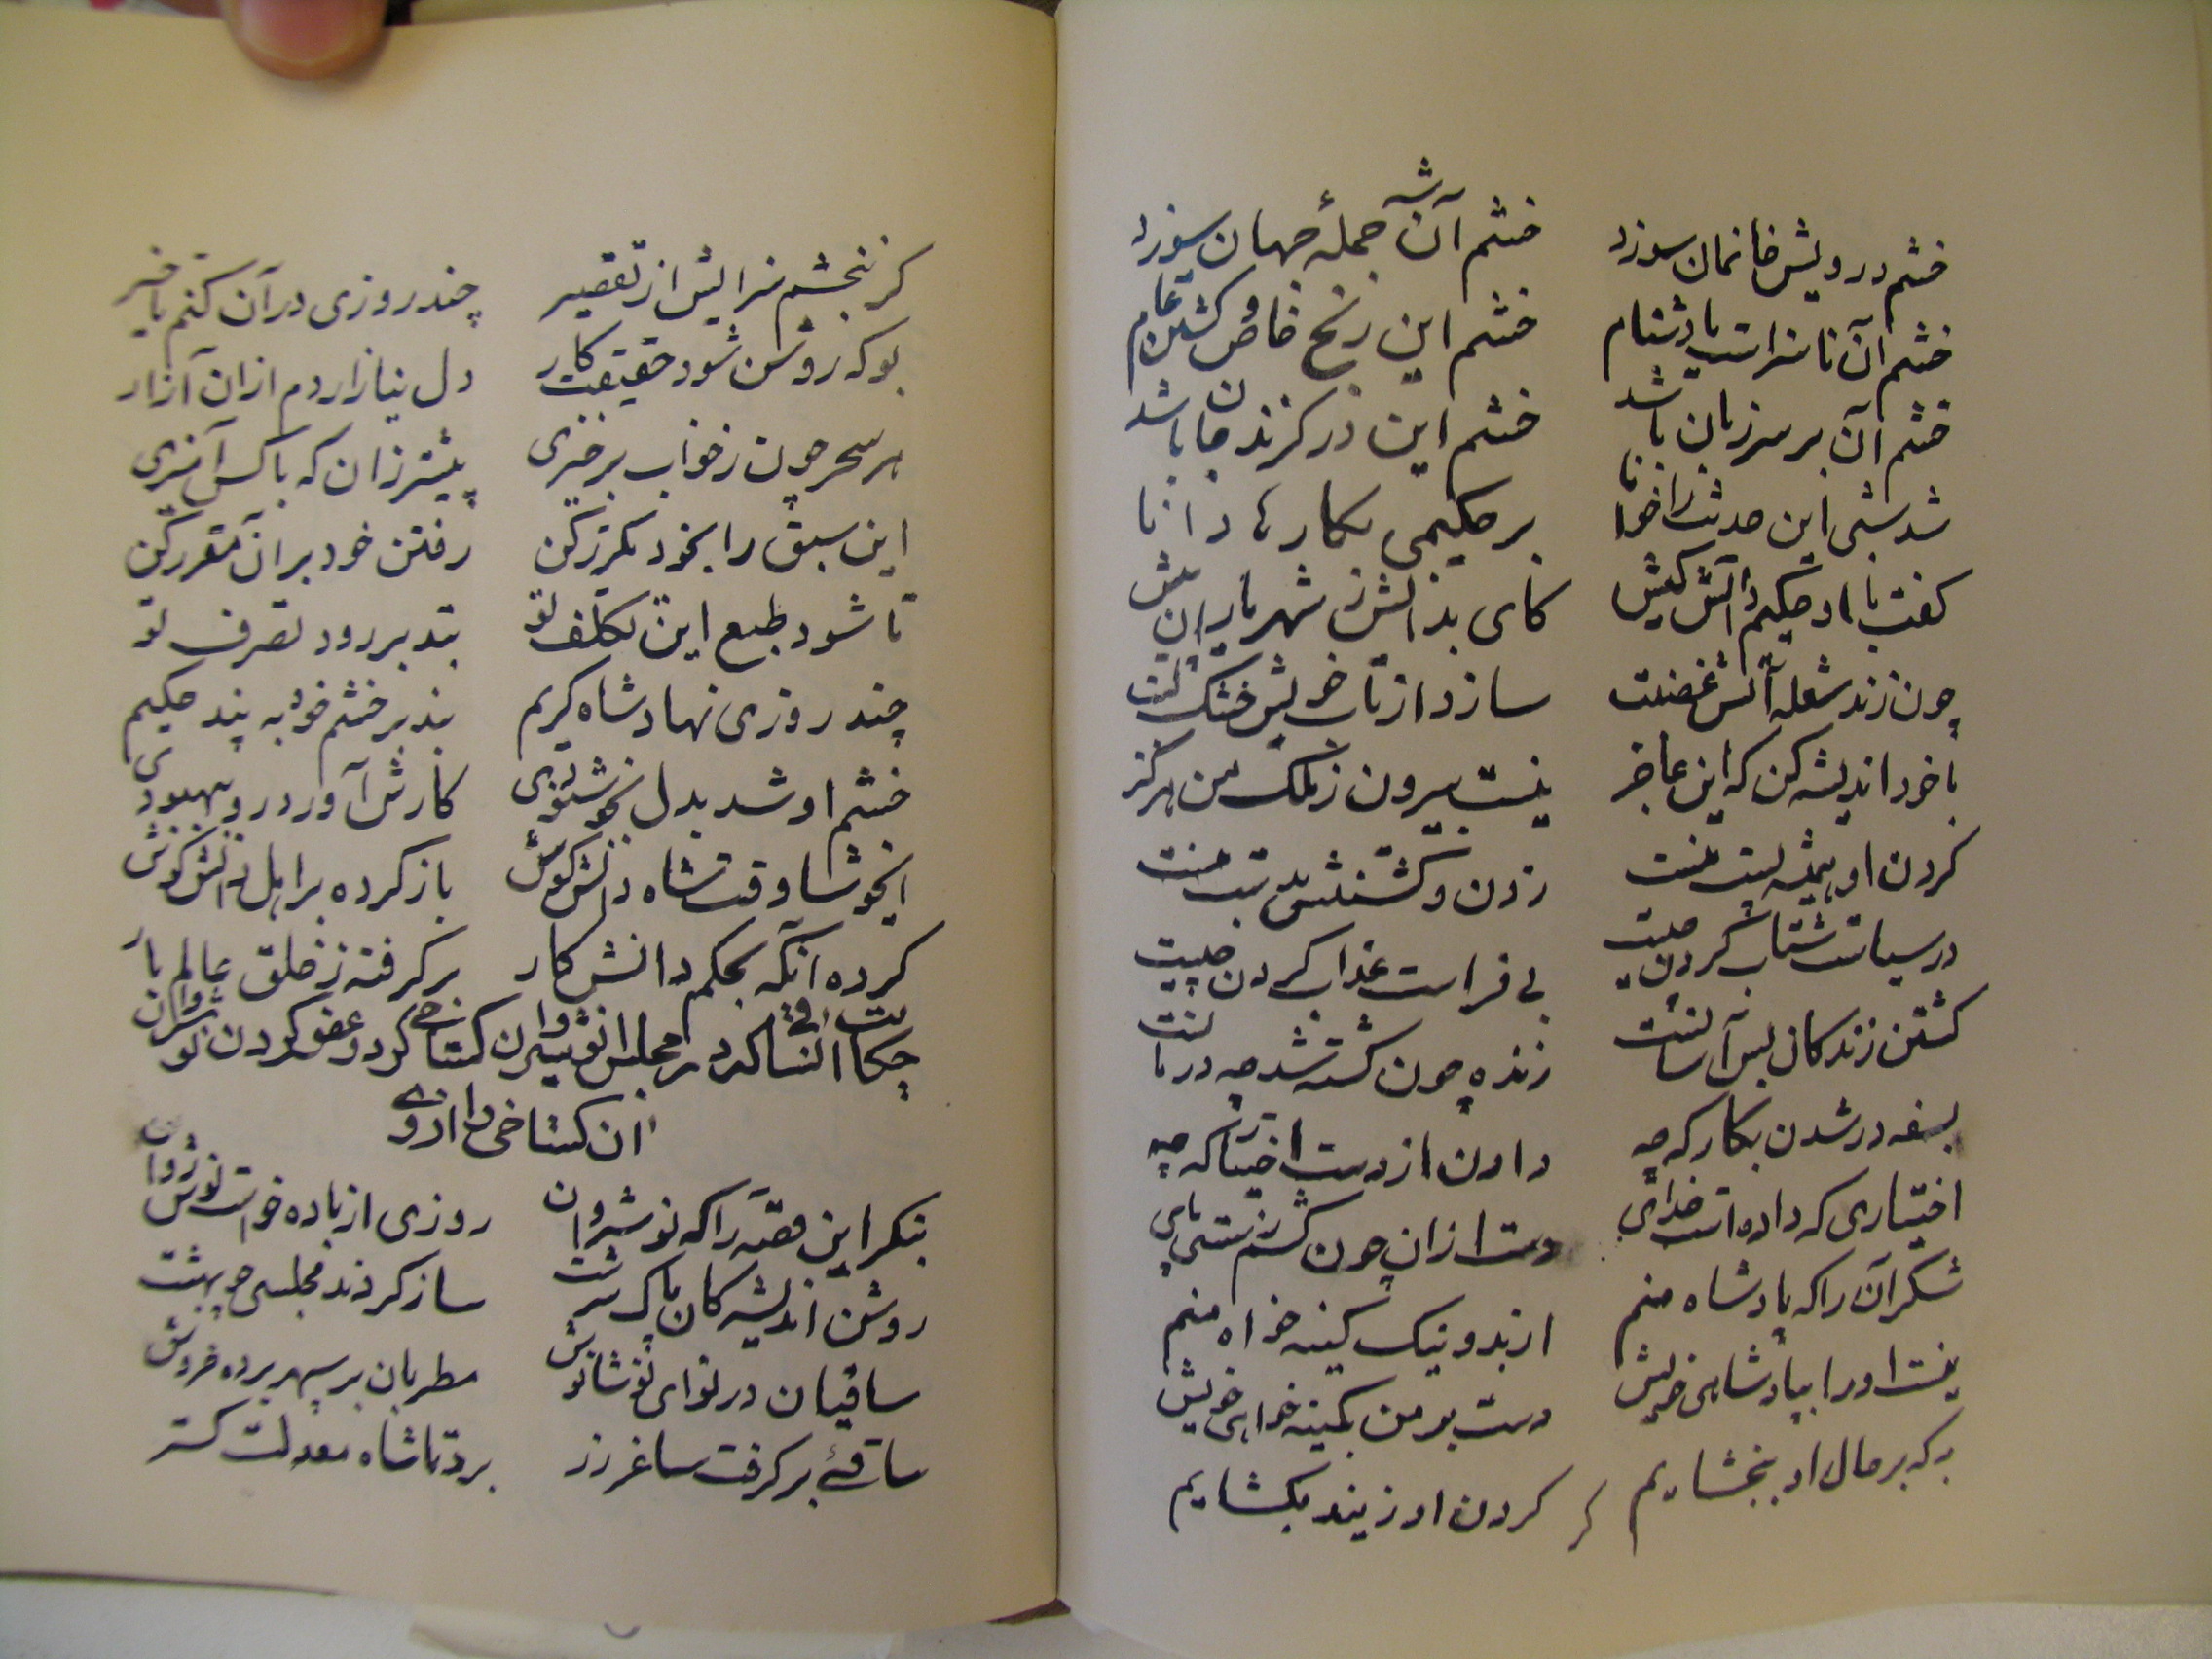 خشم درویش خانمان سوزد خشم آن شه جملهٔ جهان سوزد
خشم آن ناسزاست یا دشنام خشم این رنج خاص و کشتن عام
خشم آن بر سر زبان باشد خشم این در گزند جان باشد
شد شبی این حدیث را خوانا بر حکیمی بکارها دانا
گفت با او حکیم دانش کیش کای بدانش ز شهریاران بیش
چون زند شعله آتش غضبت سازد از تاب خویش خشک لبت
با خود اندیشه کن که این عاجز نیست بیرون ز ملک من هرگز
کردن او همیشه پست منست زدن و کشتنش بدست منست
در سیاست شتاب کردن چیست بی فراست عذاب کردن چیست
کشتن زندگان بس آسانست زنده چون کشته شد چه درمانست
بسفه در شدن بکار که چه دادن از دست اختیار که چه
اختیاری که داده است خدای دست ازان چون کشم ز سستی پای
شکر آن را که پادشاه منم از بد و نیک کینه خواه منم
نیست او را بپادشاهی خویش دست بر من بکینه خواهی خویش
به که بر حال او ببخشایم گر کردن او ز بند بگشایم
گر نبخشم سزایش از تقصیر چند روزی در آن کنم تاخیر
بو که روشن شود حقیقت کار دل نیازاردم ازان آزار
هر سحر چون ز خواب برخیزی پیشتر زان که با کس آمیزی
این سبق را بخود مکرر کن رفتن خود بران مقرر کن
تا شود طبع این تکلف تو بتدبر رود تصرف تو
چند روزی نهاد شاه کریم بند بر خشم خود به پند حکیم
خشم او شد بدل بخوشنودی کارش آورد رو ببهبودی
ایخوشا وقت شاه دانش کوش باز کرده بر اهل دانش گوش
کرده آنگه بحکم دانش کار بر گرفته ز خلق عالم بار
حکایت آن ساقی که در مجلس انوشیروان گستاخی کرد و عفو کردن نوشیروان
آن گستاخی را از وی
بنگر این قصه را که نوشروان روزی از باده خواست نوش روان
روشن اندیشه‌کان پاک سرشت ساز کردند مجلسی چو بهشت
ساقیان در نوای نوشانوش مطربان بر سپهر برده خروش
ساقئی بر گرفت ساغر زر برد تا شاه معدلت گستر